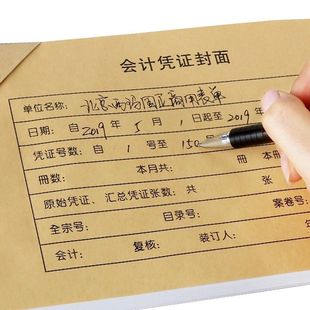 会计凭证封面
单位名称: 北京西玛国正商用表单
日期: 自 2019 年 5 月 1 日起至 2019 年
凭证号数: 自 1 号至 150
册数: 本月共: 册 本册
原始凭证、汇总凭证张数: 共 张
全宗号: 目录号: 案卷号:
会计: 复核: 装订人: